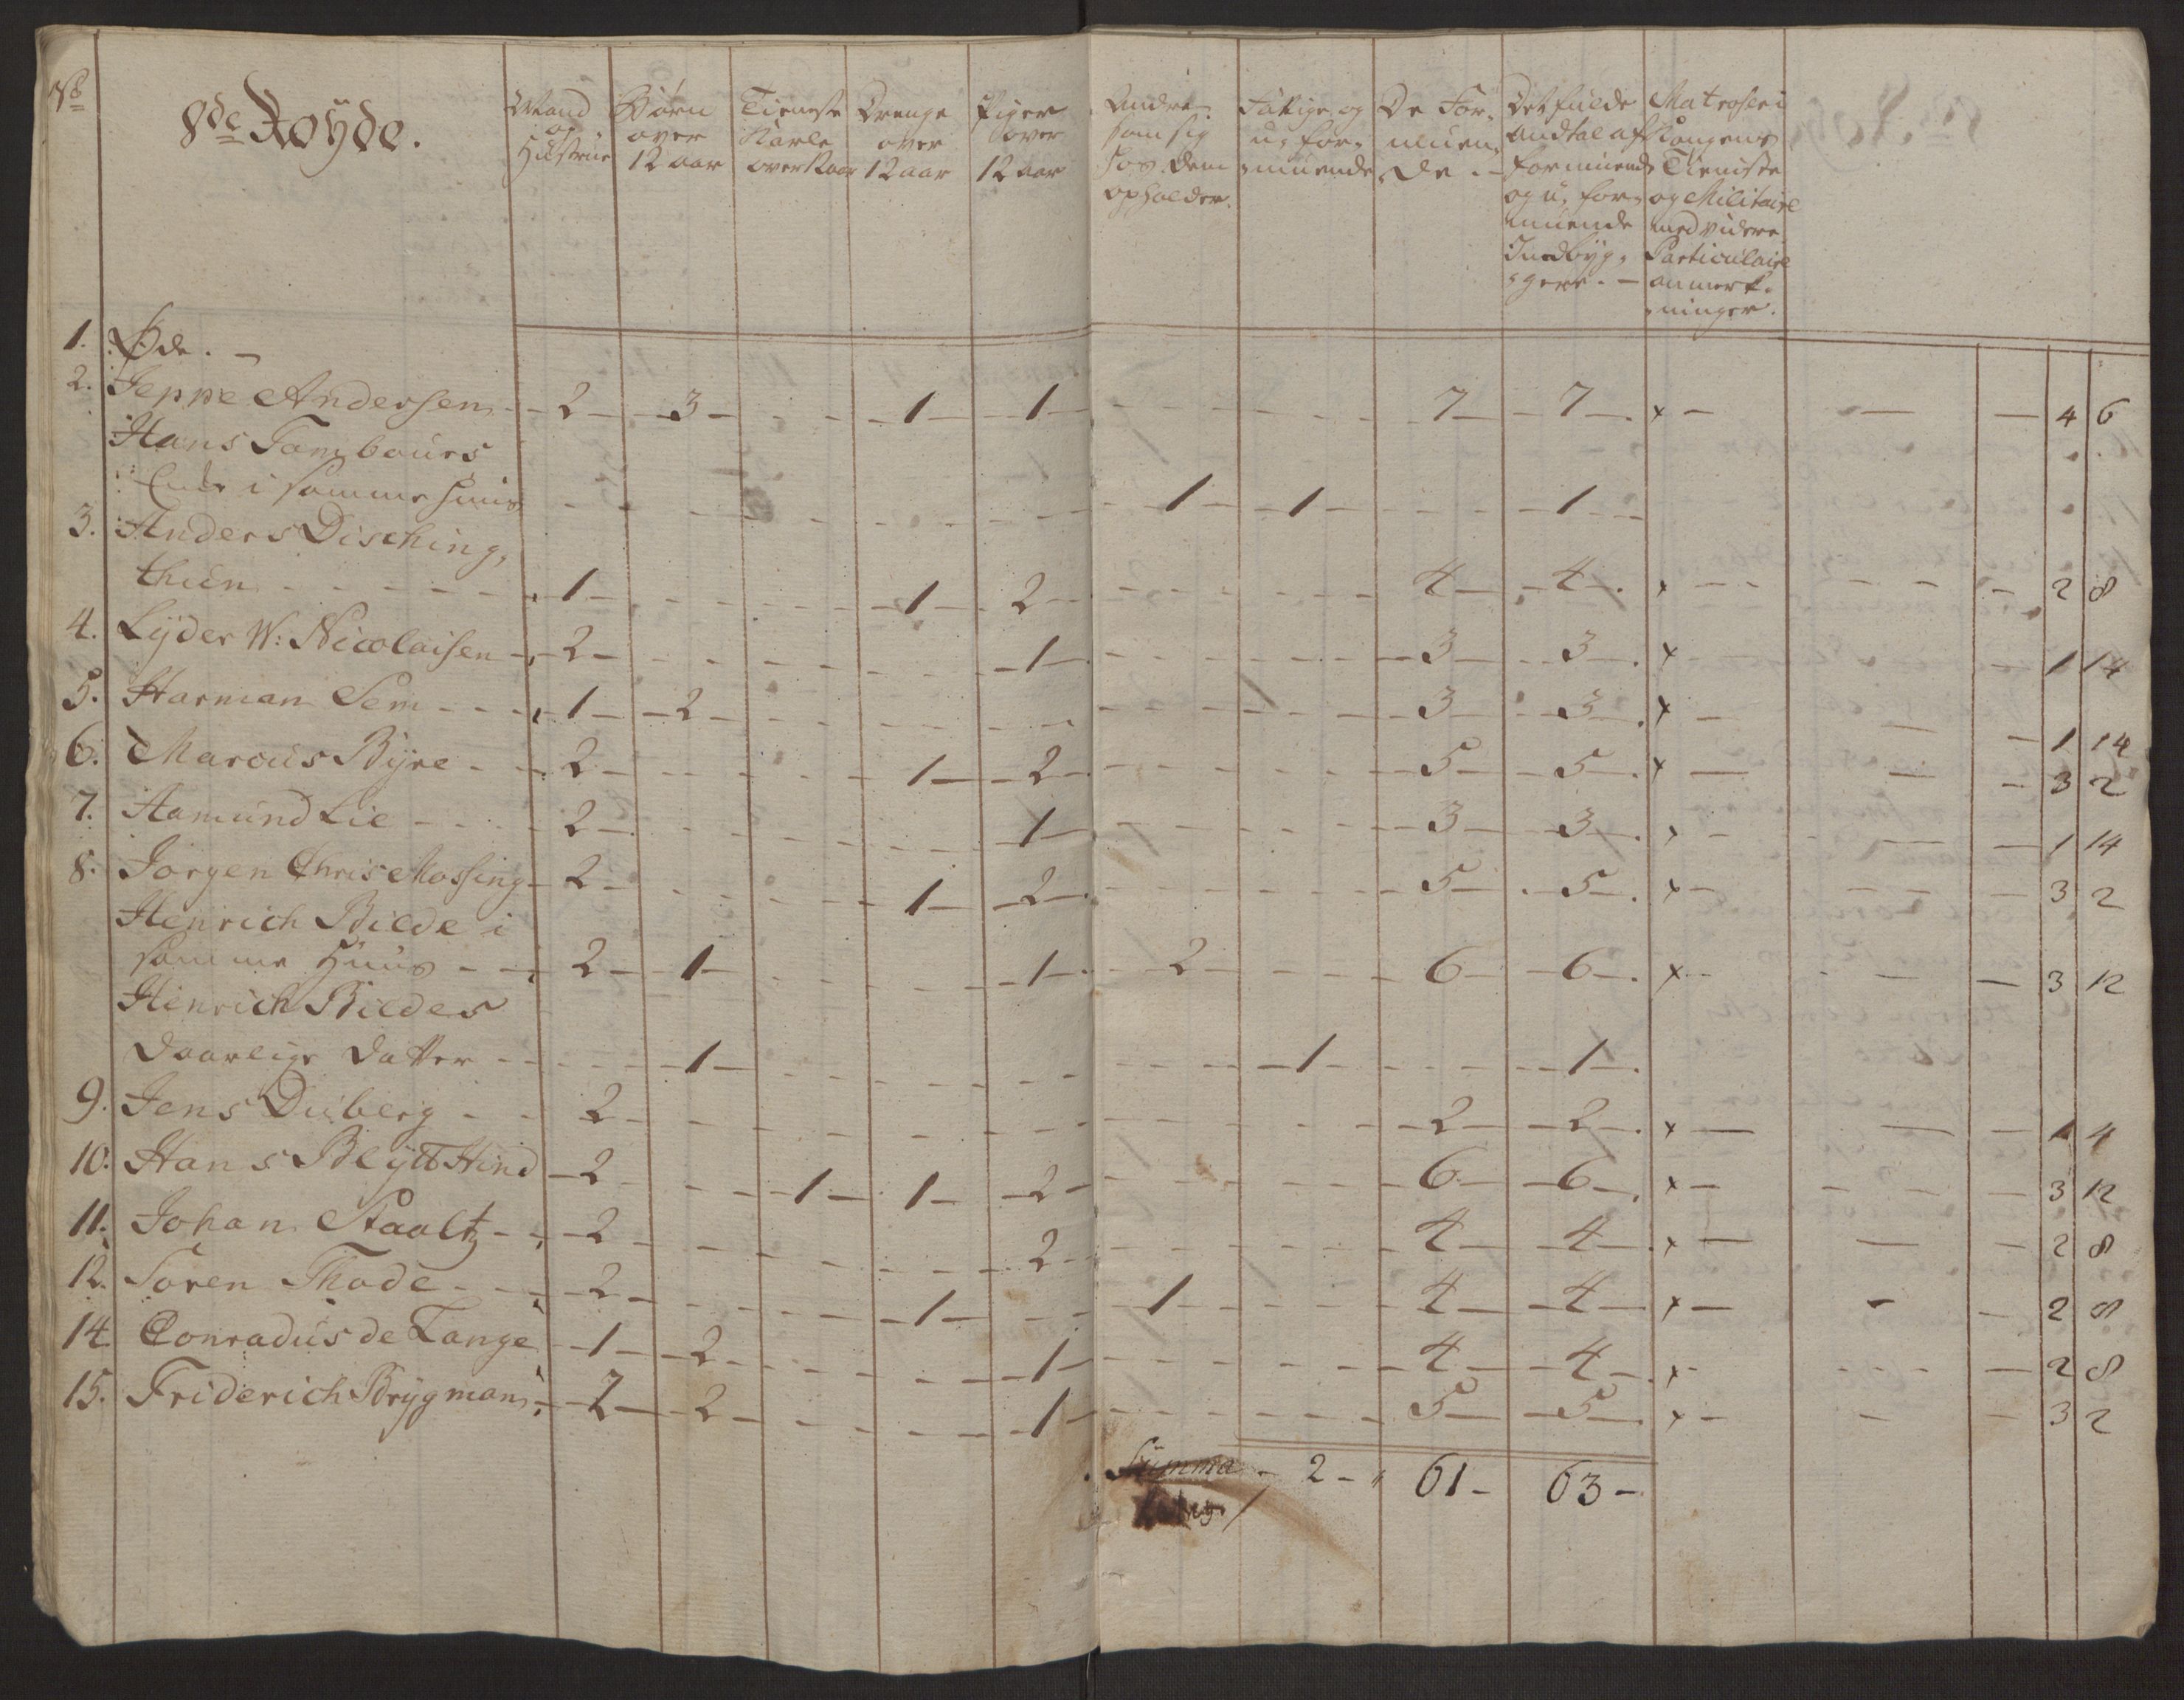 No
8de Røyde.
Mand og Hustrue
Børn over 12 aar
Tieneste Karle over 12 aar
Drenge over 12 aar
Piger over 12 aar
Andre som sig hos dem opholder.
Fattige og u-formuende
De Formuende.
Det fulde Andtal af formuende og u-formuende Indbyggere.
Matroser i Kongens Tieniste og Militaire med videre Particulaire anmerkninger.
1. Øde.
2. Jeppe Andersen 2 3 1 1 7 7 x 4 6
Hans Tambours
Enke i samme huus 1 1 1
3. Anders Disching-
thun 1 1 2 4 4 x 2 8
4. Lyder W: Nicolaisen 2 1 3 3 x 1 14
5. Harman Sem 1 2 3 3 x 1 14
6. Marcus Byre 2 1 2 5 5 x 3 2
7. Aamund Lie 2 1 3 3 x 1 14
8. Jørgen Chris Mossing 2 1 2 5 5 x 3 2
Henrich Bilde i
samme Huus 2 1 1 2 6 6 x 3 12
Henrich Bildes
daarlige datter 1 1 1
9. Jens Duberg 2 2 2 x 1 4
10. Hans Blytt Hind 2 1 1 2 6 6 x 3 12
11. Johan Staaltz 2 2 4 4 x 2 8
12. Søren Thode 2 1 1 4 4 x 2 8
14. Conradus de Lange 1 2 1 4 4 x 2 8
15. Friderich Brygman 2 2 1 5 5 x 3 2
Summa 2 61 63